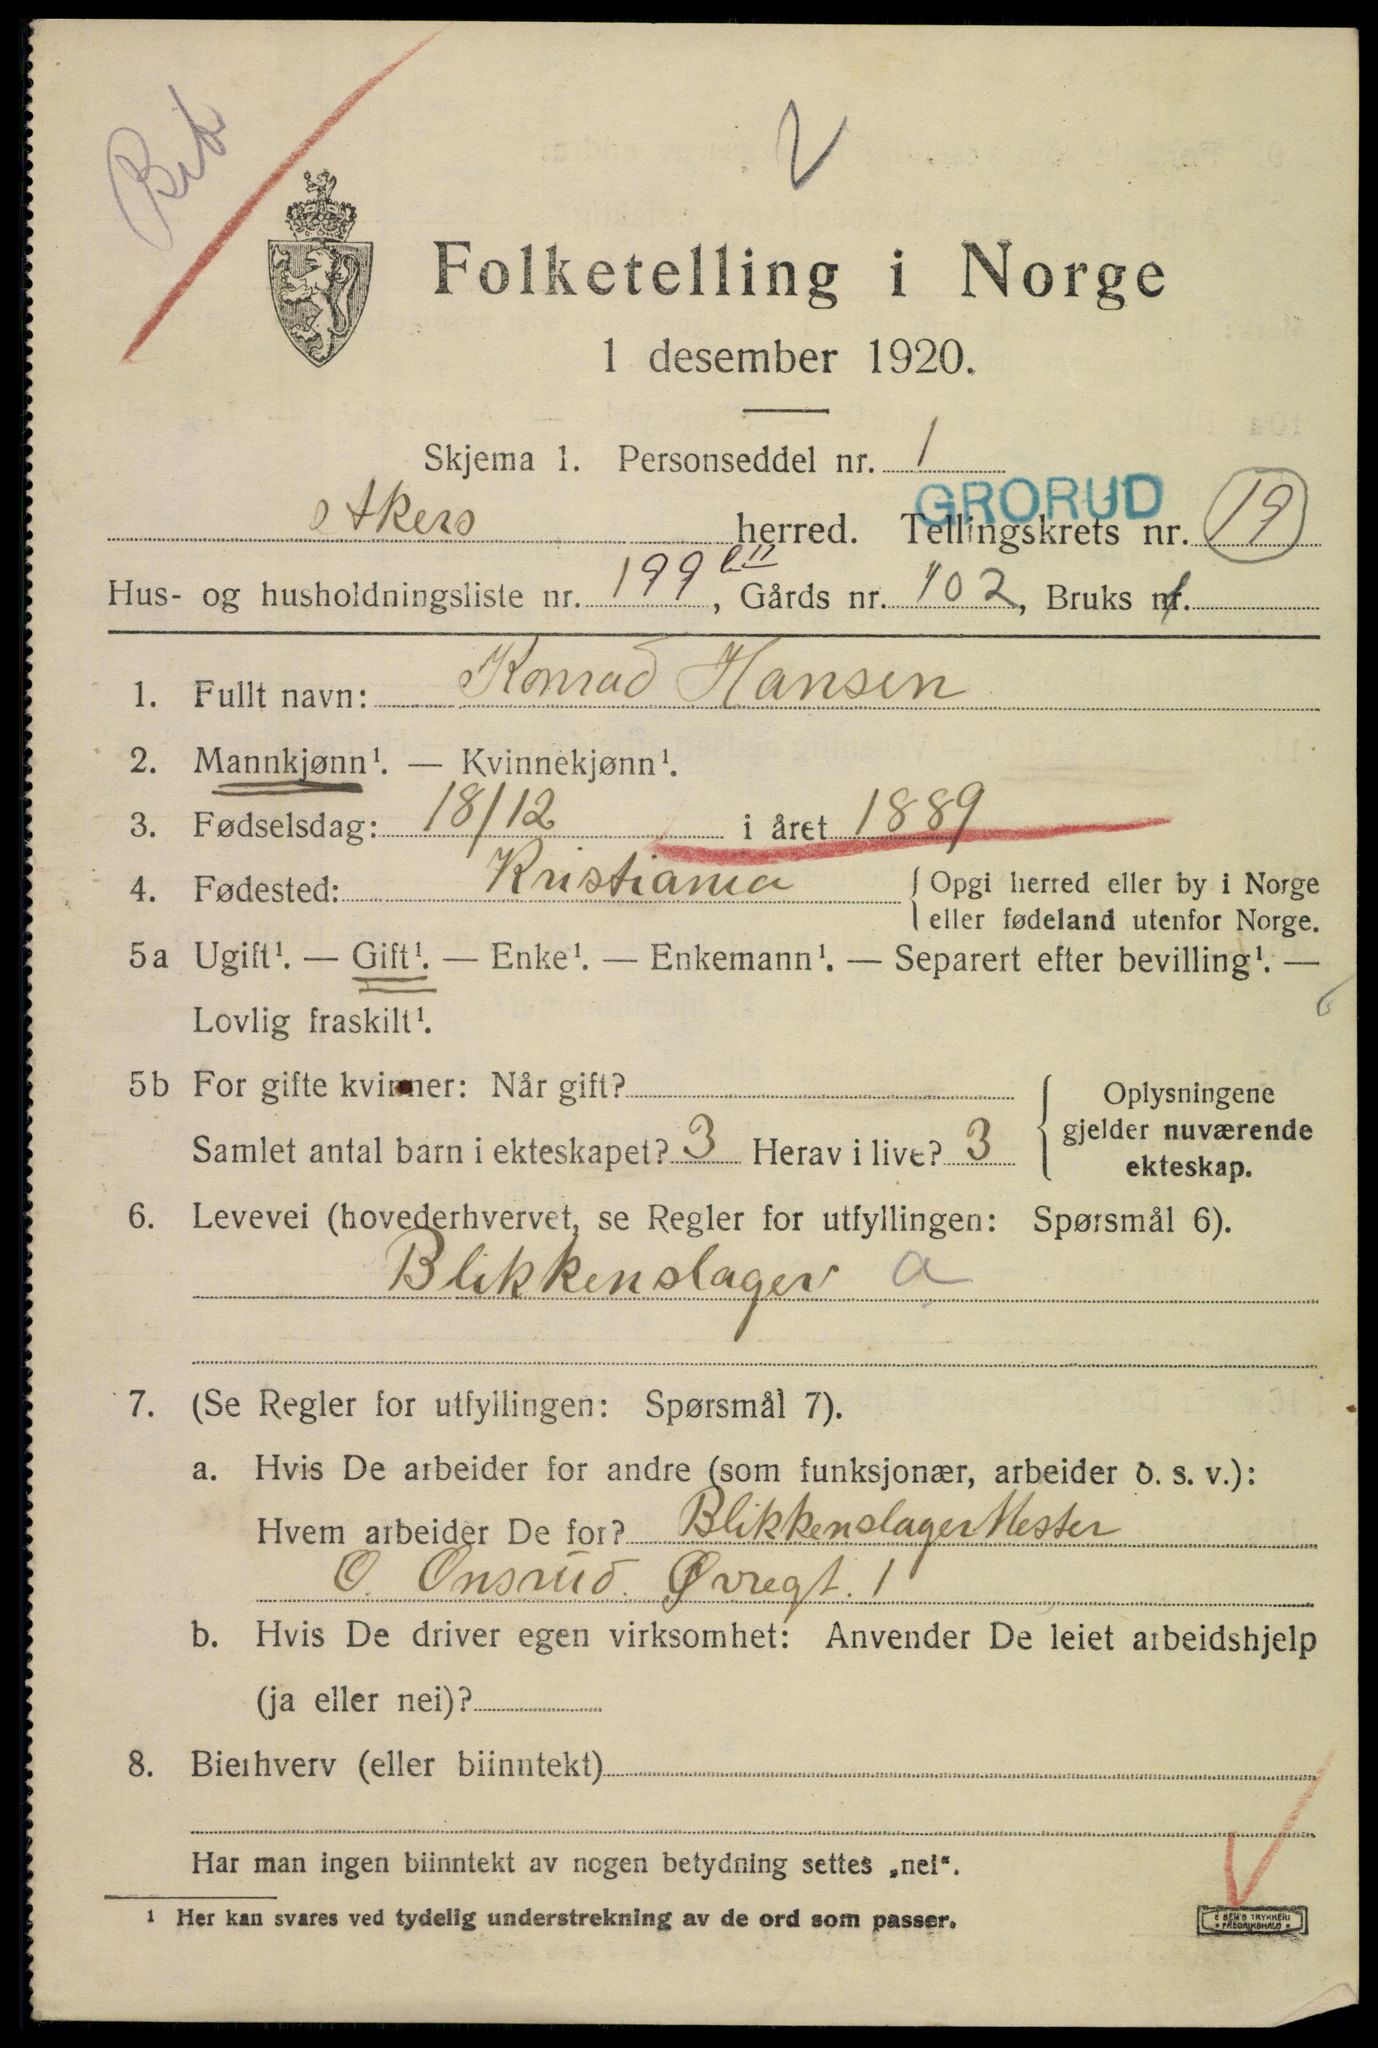 Bik
V
Folketelling i Norge
1 desember 1920.
Skjema 1. Personseddel nr. 1
GRORUD
Akers herred. Tellingskrets nr. 19
Hus- og husholdningsliste nr. 199, Gårds nr. 102, Bruks nr.
1. Fullt navn: Konrad Hansen
2. Mannkjønn¹. — Kvinnekjønn¹.
3. Fødselsdag: 18/12 i året 1889
4. Fødested: Kristiania { Opgi herred eller by i Norge
eller fødeland utenfor Norge.
5a Ugift¹. — Gift¹. — Enke¹. — Enkemann¹. — Separert efter bevilling¹. —
Lovlig fraskilt¹.
5b For gifte kvinner: Når gift?
Samlet antal barn i ekteskapet? 3 Herav i live? 3
{ Oplysningene
gjelder nuværende
ekteskap.
6. Levevei (hovederhvervet, se Regler for utfyllingen: Spørsmål 6).
Blikkenslager a
7. (Se Regler for utfyllingen: Spørsmål 7).
a. Hvis De arbeider for andre (som funksjonær, arbeider o. s. v.):
Hvem arbeider De for? BlikkenslagerMester
O. Onsrud. Øvregt. 1
b. Hvis De driver egen virksomhet: Anvender De leiet arbeidshjelp
(ja eller nei)?
8. Bierhverv (eller biinntekt)
Har man ingen biinntekt av nogen betydning settes „nei“.
1 Her kan svares ved tydelig understrekning av de ord som passer.
E SEM'S TRYKKERI
FREDRIKSHALD